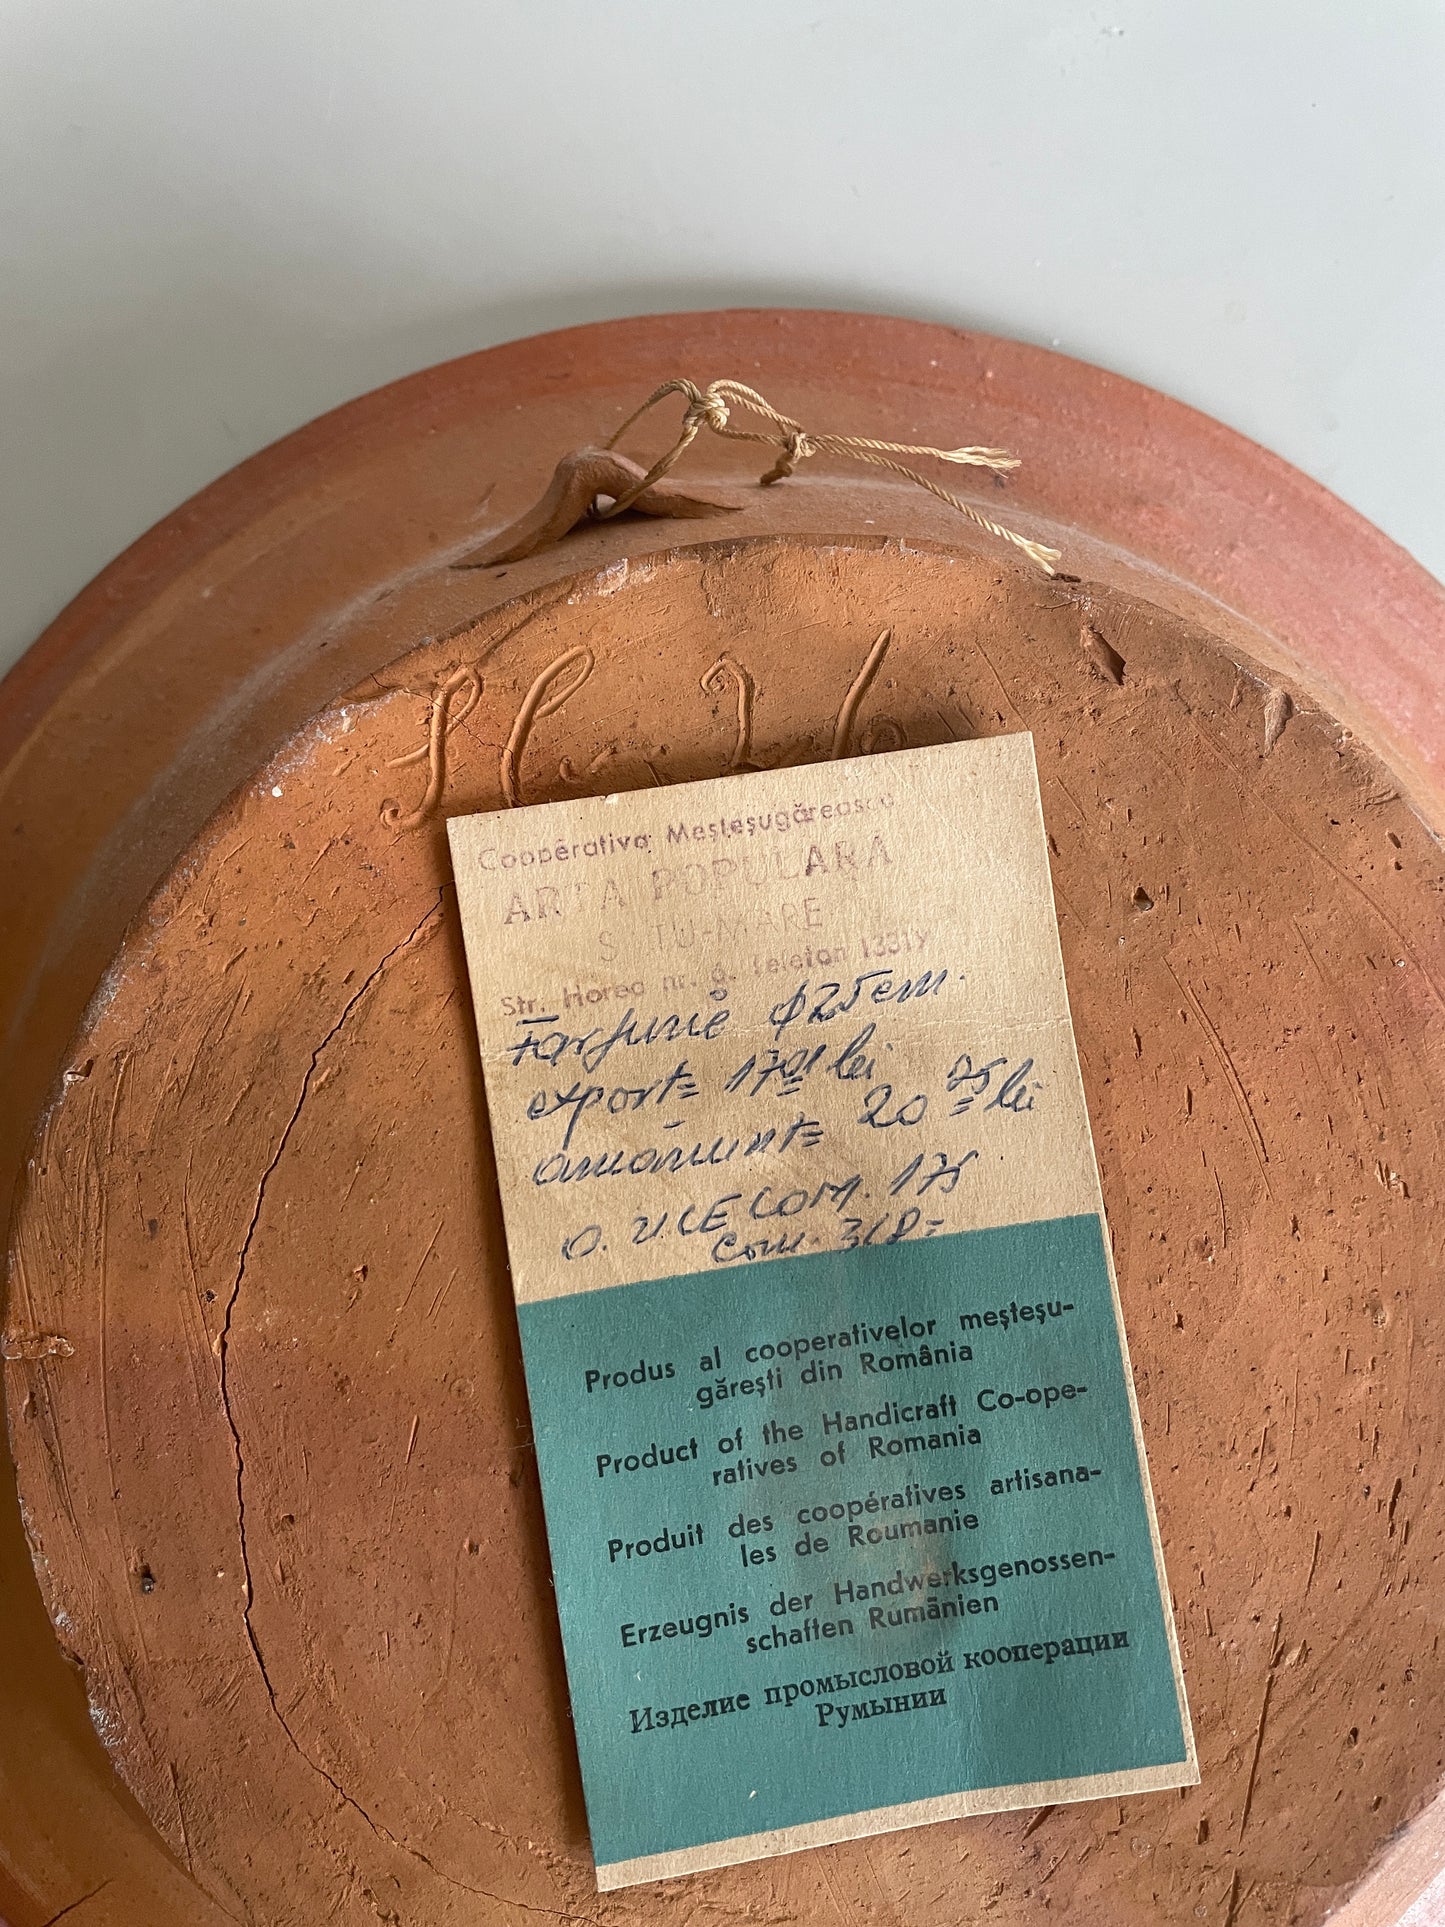 Cooperativa Meșteșugărească
ARTA POPULARĂ
SATU-MARE
Str. Horea nr. 6. telefon
Farfurie ⌀ 25 cm.
export= lei
amănunt= 20 75 lei
O. UCECOM. 175
com. 318=
Produs al cooperativelor meșteșu-
gărești din România
Product of the Handicraft Co-ope-
ratives of Romania
Produit des coopératives artisana-
les de Roumanie
Erzeugnis der Handwerksgenossen-
schaften Rumänien
Изделие промысловой кооперации
Румынии